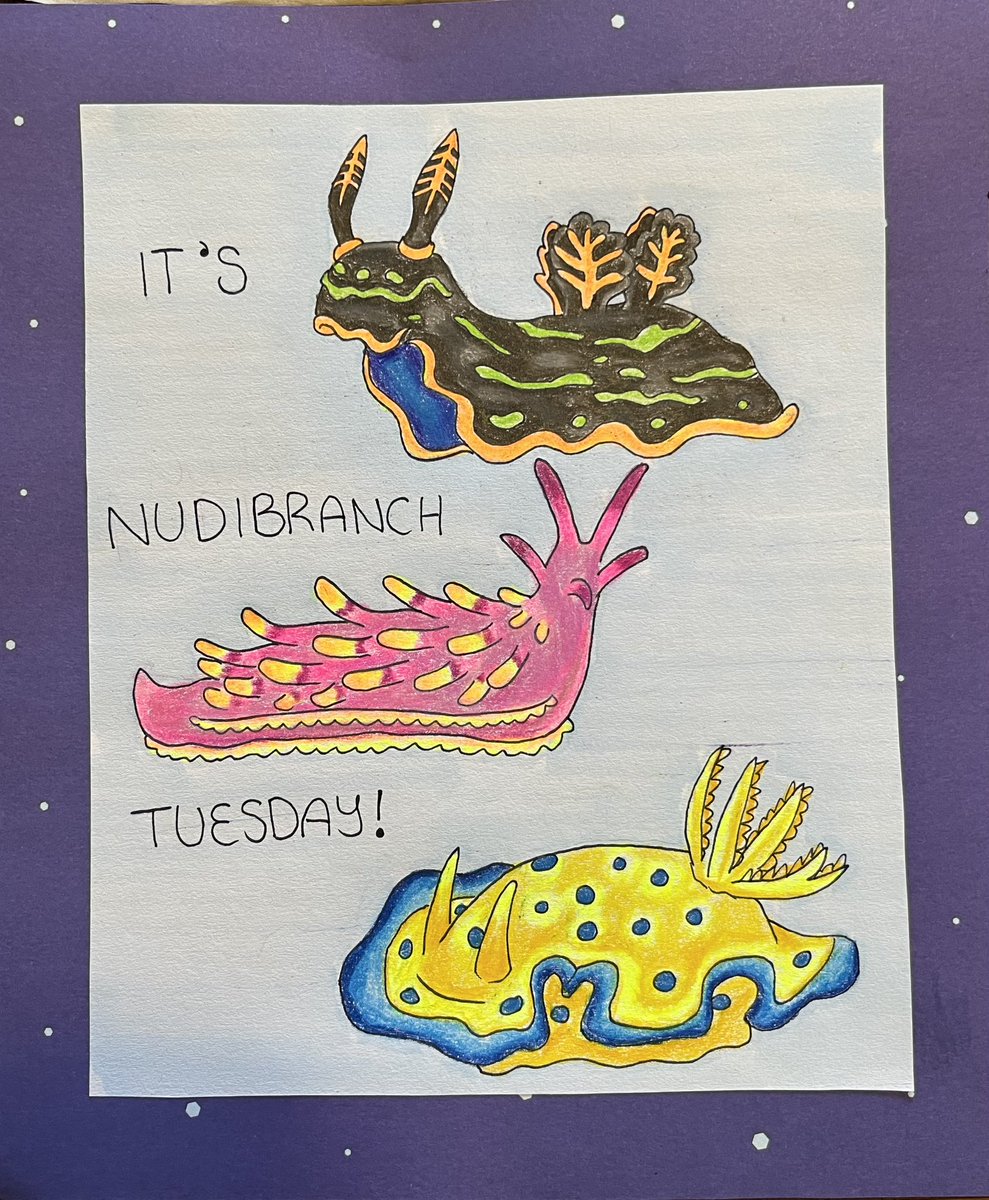 IT'S
NUDIBRANCH
TUESDAY!